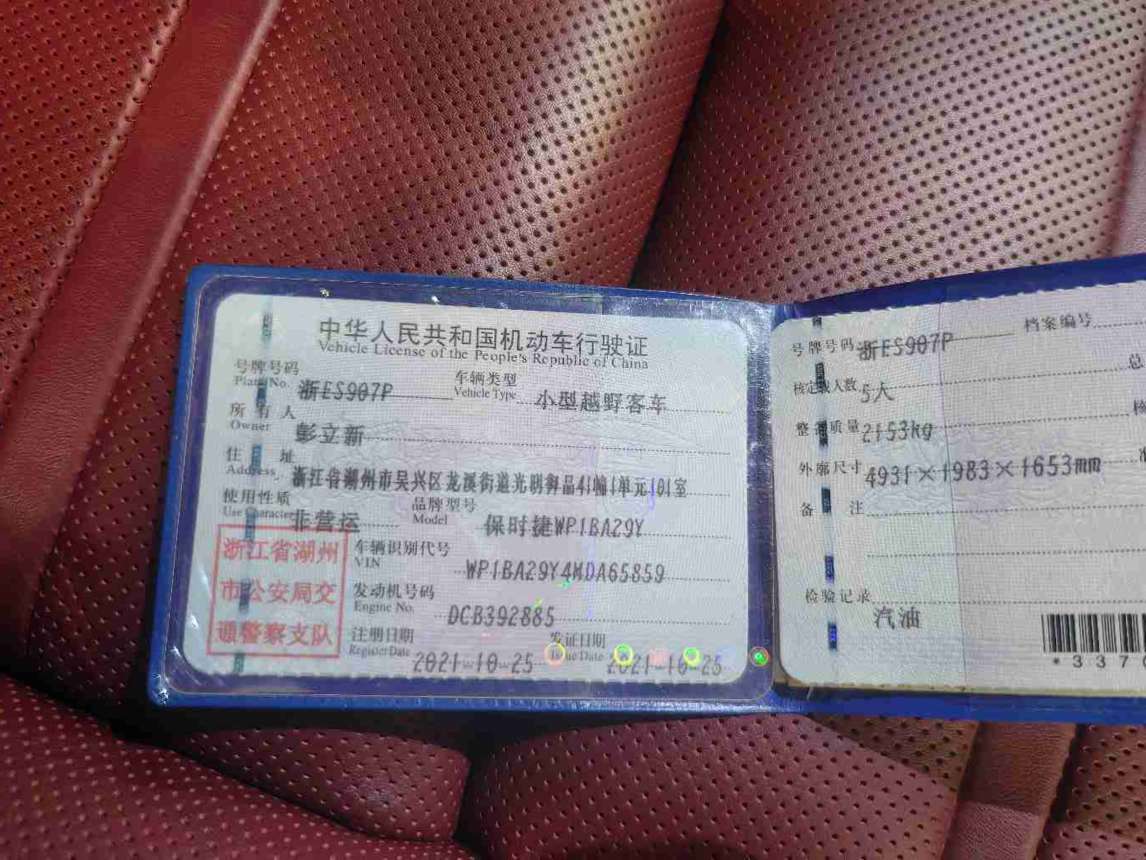 中华人民共和国机动车行驶证
Vehicle License of the People's Republic of China
号牌号码 浙ES907P 车辆类型 小型越野客车
Plate No. Vehicle Type
所有人 彭立新
Owner
住址 浙江省湖州市吴兴区龙溪街道光明御品41幢1单元101室
Address
使用性质 非营运 品牌型号 保时捷WP1BA29Y
Use Character Model
浙江省湖州
市公安局交
通警察支队
车辆识别代号 WP1BA29Y4MDA65859
VIN
发动机号码 DCB392885
Engine No.
注册日期 2021-10-25 发证日期 2021-10-25
Register Date Issue Date
号牌号码 浙ES907P 档案编号
核定载人数 5人 总
整备质量 2153kg 核
外廓尺寸 4931×1983×1653mm 准
备注
检验记录
汽油
*337